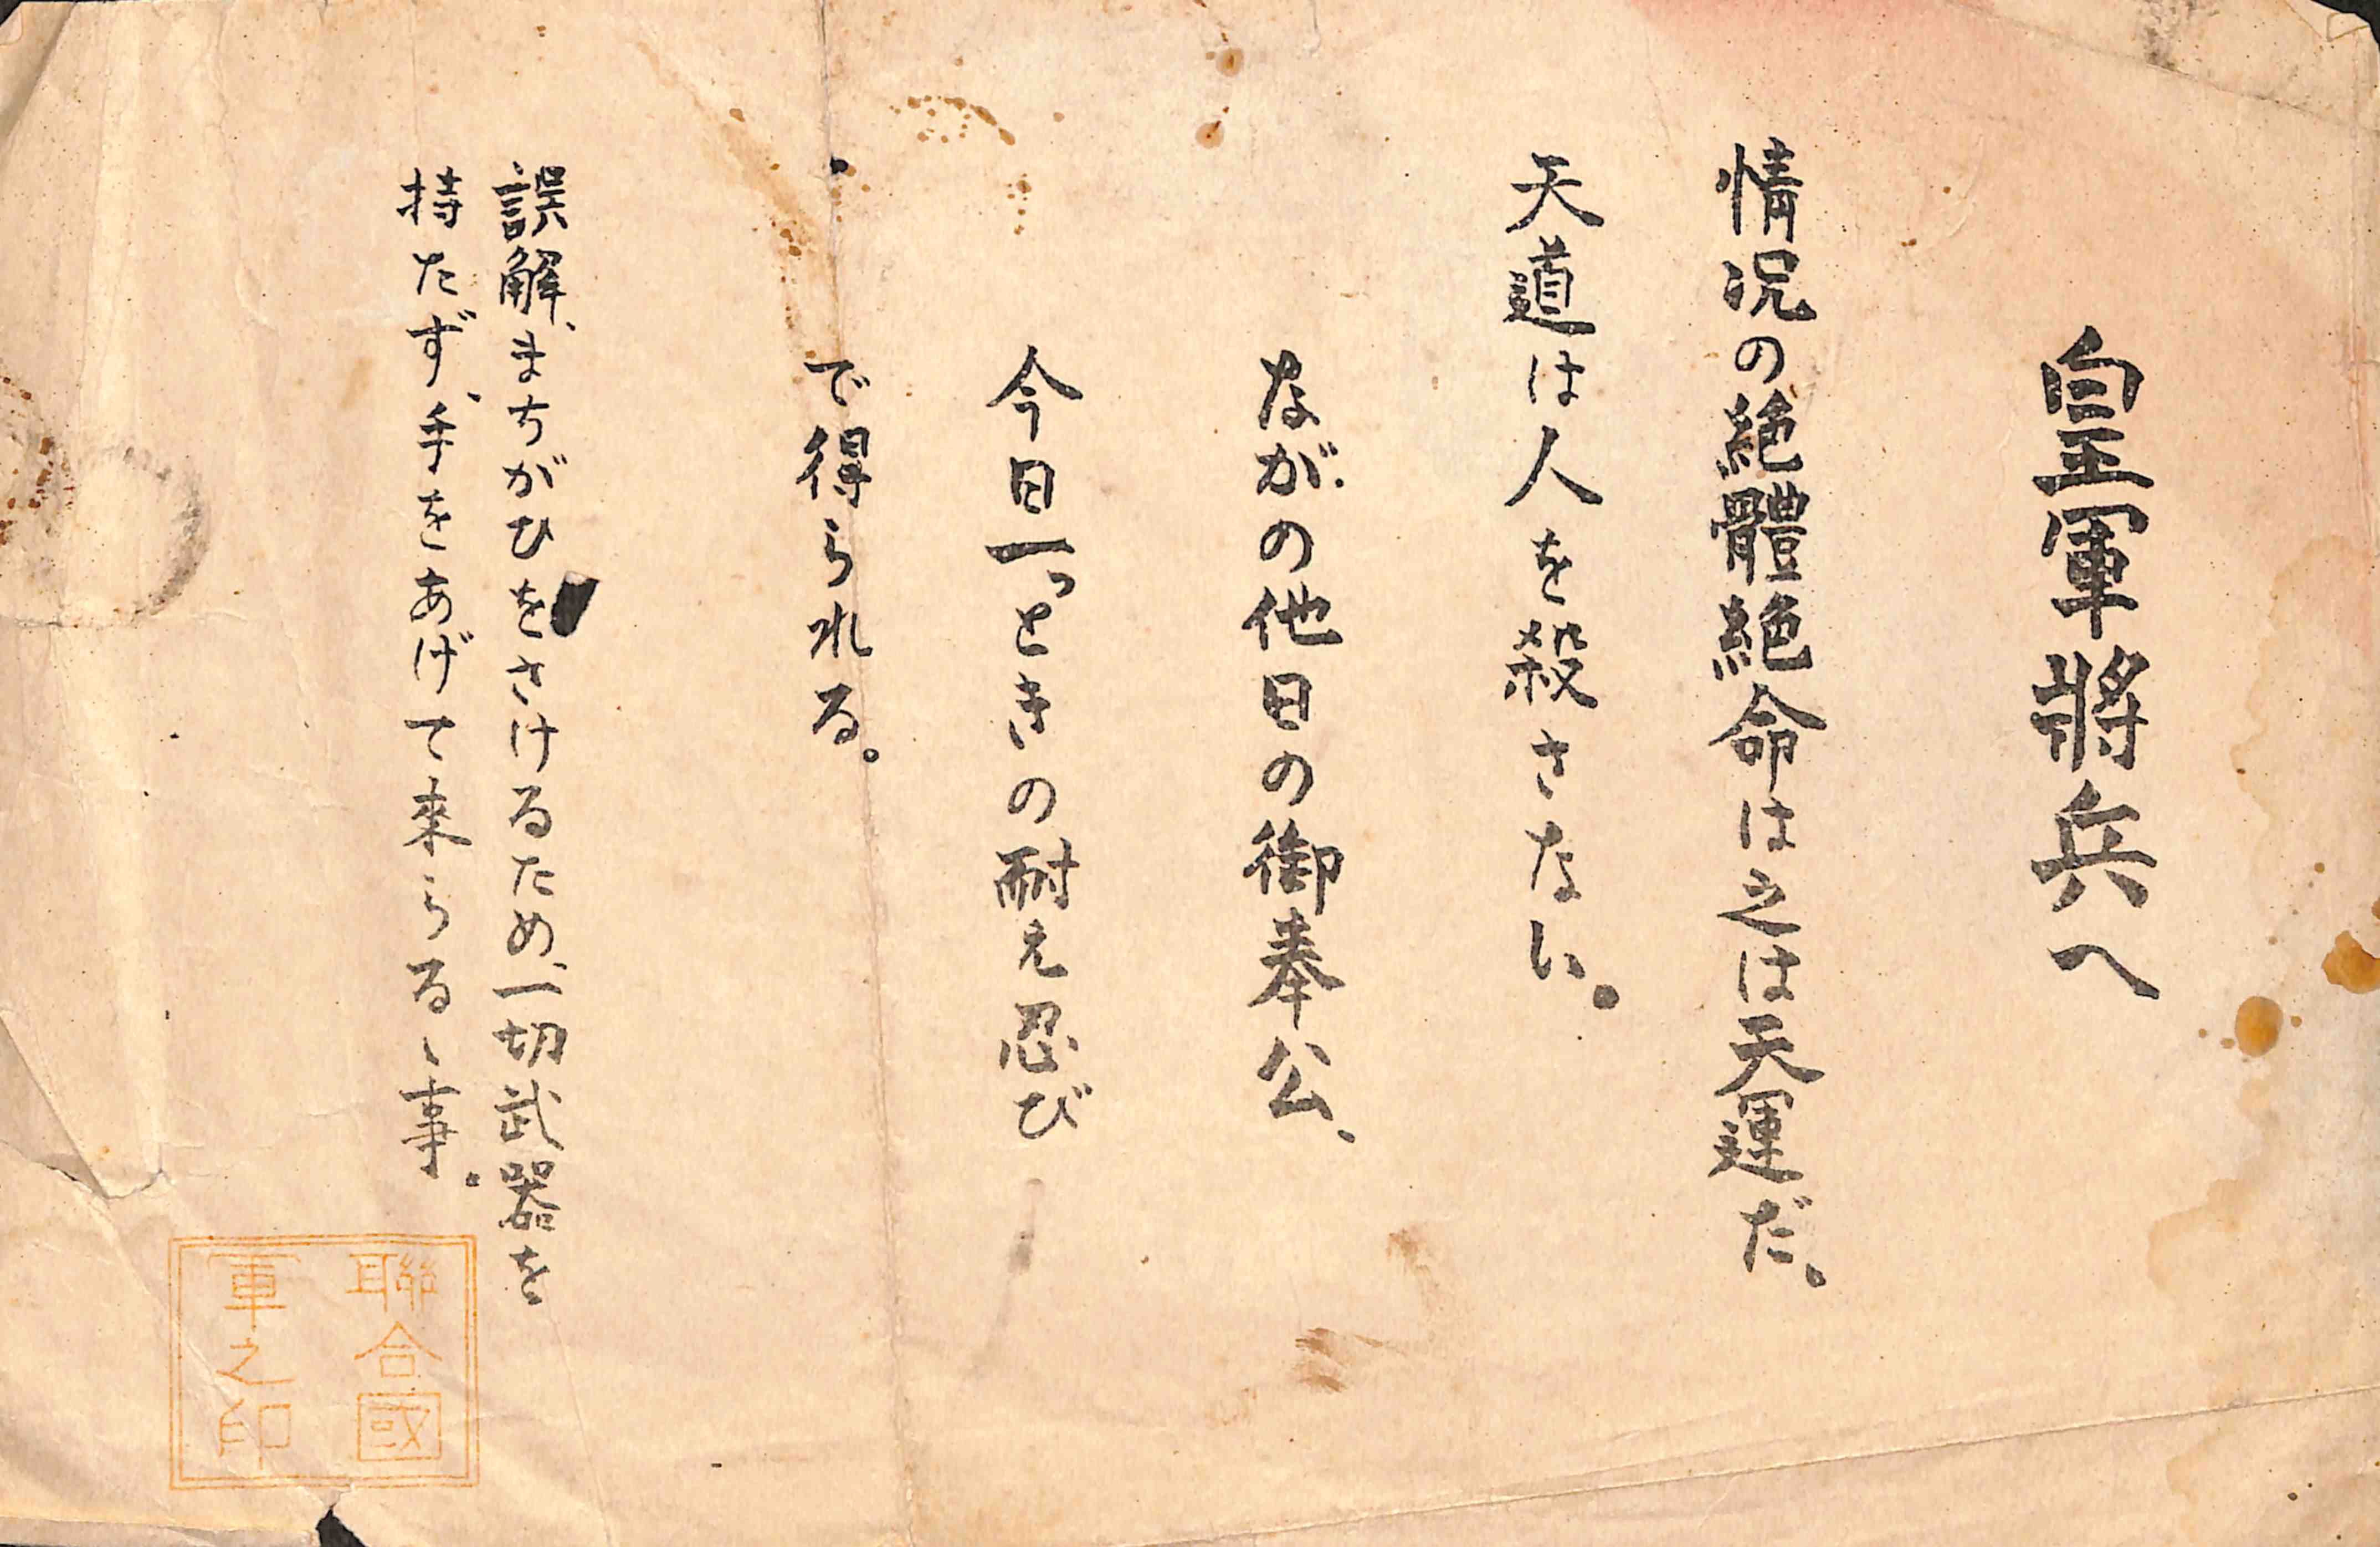 皇軍將兵へ
情况の絶體絶命は之は天運だ、
天道は人を殺さない。
ながの他日の御奉公、
今日一っときの耐え忍び
で得られる。
誤解、まちがひをさけるため、一切武器を
持たず、手をあげて来らるゝ事。
聯合國
軍之印